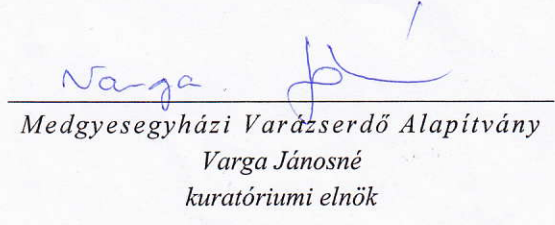 Varga Já
Medgyesegyházi Varázserdő Alapítvány
Varga Jánosné
kuratóriumi elnök